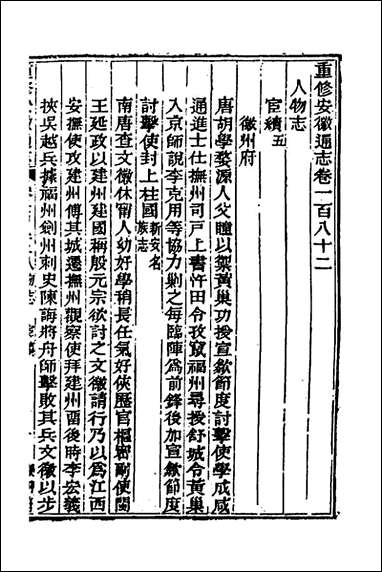 重修安徽通志卷一百八十二
人物志
宦績五
徽州府
唐胡學婺源人父瞳以禦黃巢功授宣歙節度討擊使學成咸
通進士仕撫州司戶上書忤田令孜竄福州尋授舒城令黃巢
入京師說李克用等協力剿之每臨陣為前鋒後加宣歙節度
討擊使封上柱國新安名族志
南唐查文徽休甯人幼好學稍長任氣好俠歷官樞密副使閩
王延政以建州建國稱殷元宗欲討之文徽請行乃以為江西
安撫使攻建州傅其城遷撫州觀察使拜建州留後時李宏義
挾吳越兵據福州劍州刺史陳誨將舟師擊敗其兵文徽以步